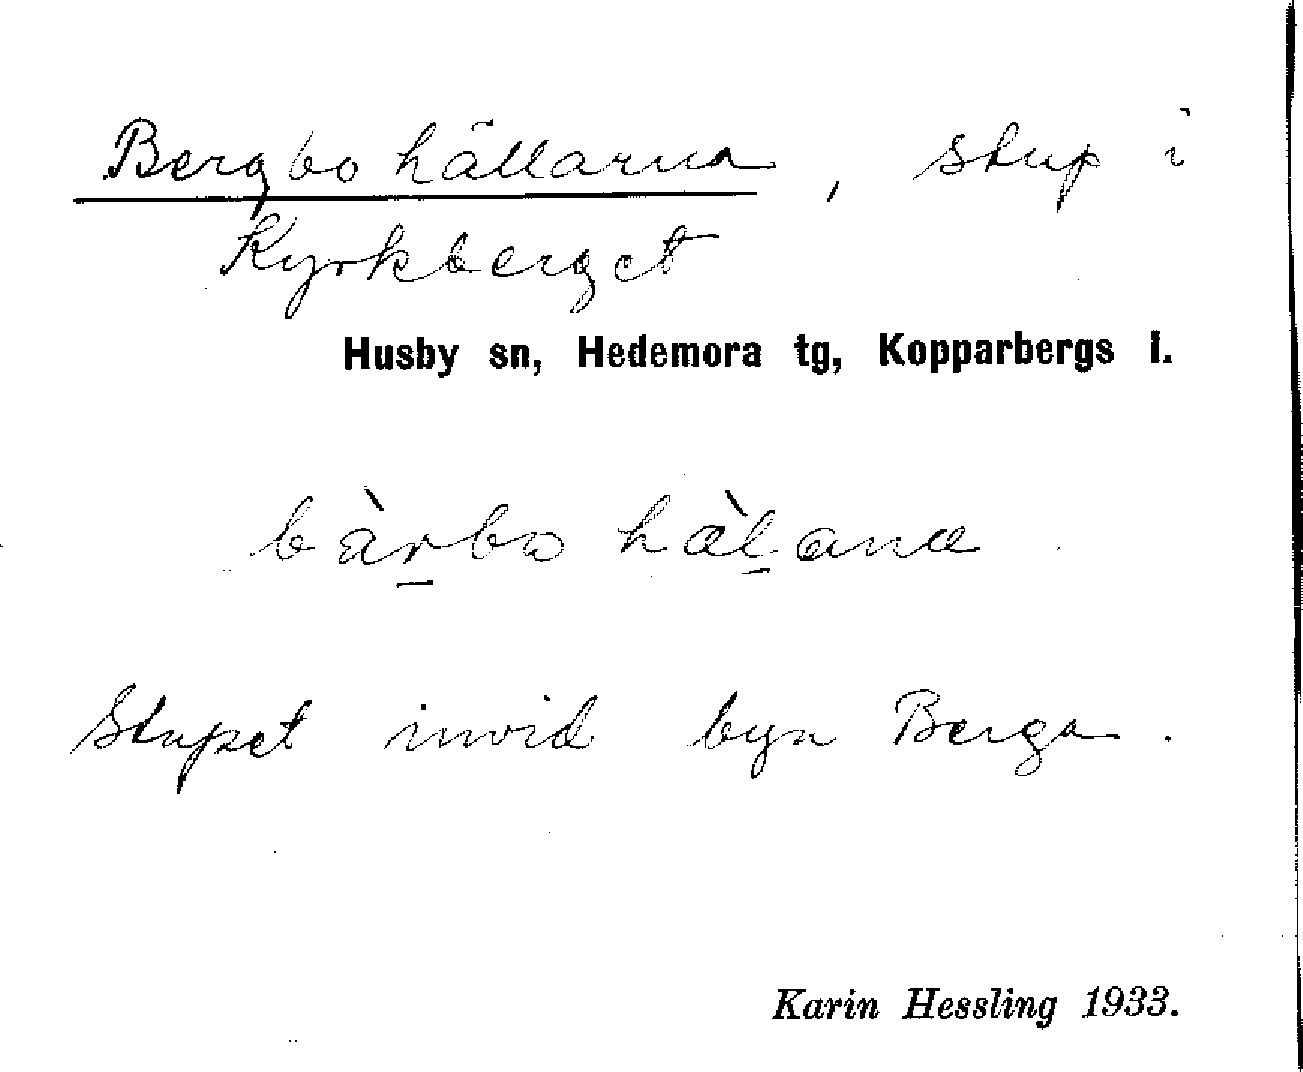 Bergbohällarna, stup i
Kyrkberget
Husby sn, Hedemora tg, Kopparbergs l.
bàrbo hàlana
Stupet invid byn Berga.
Karin Hessling 1933.